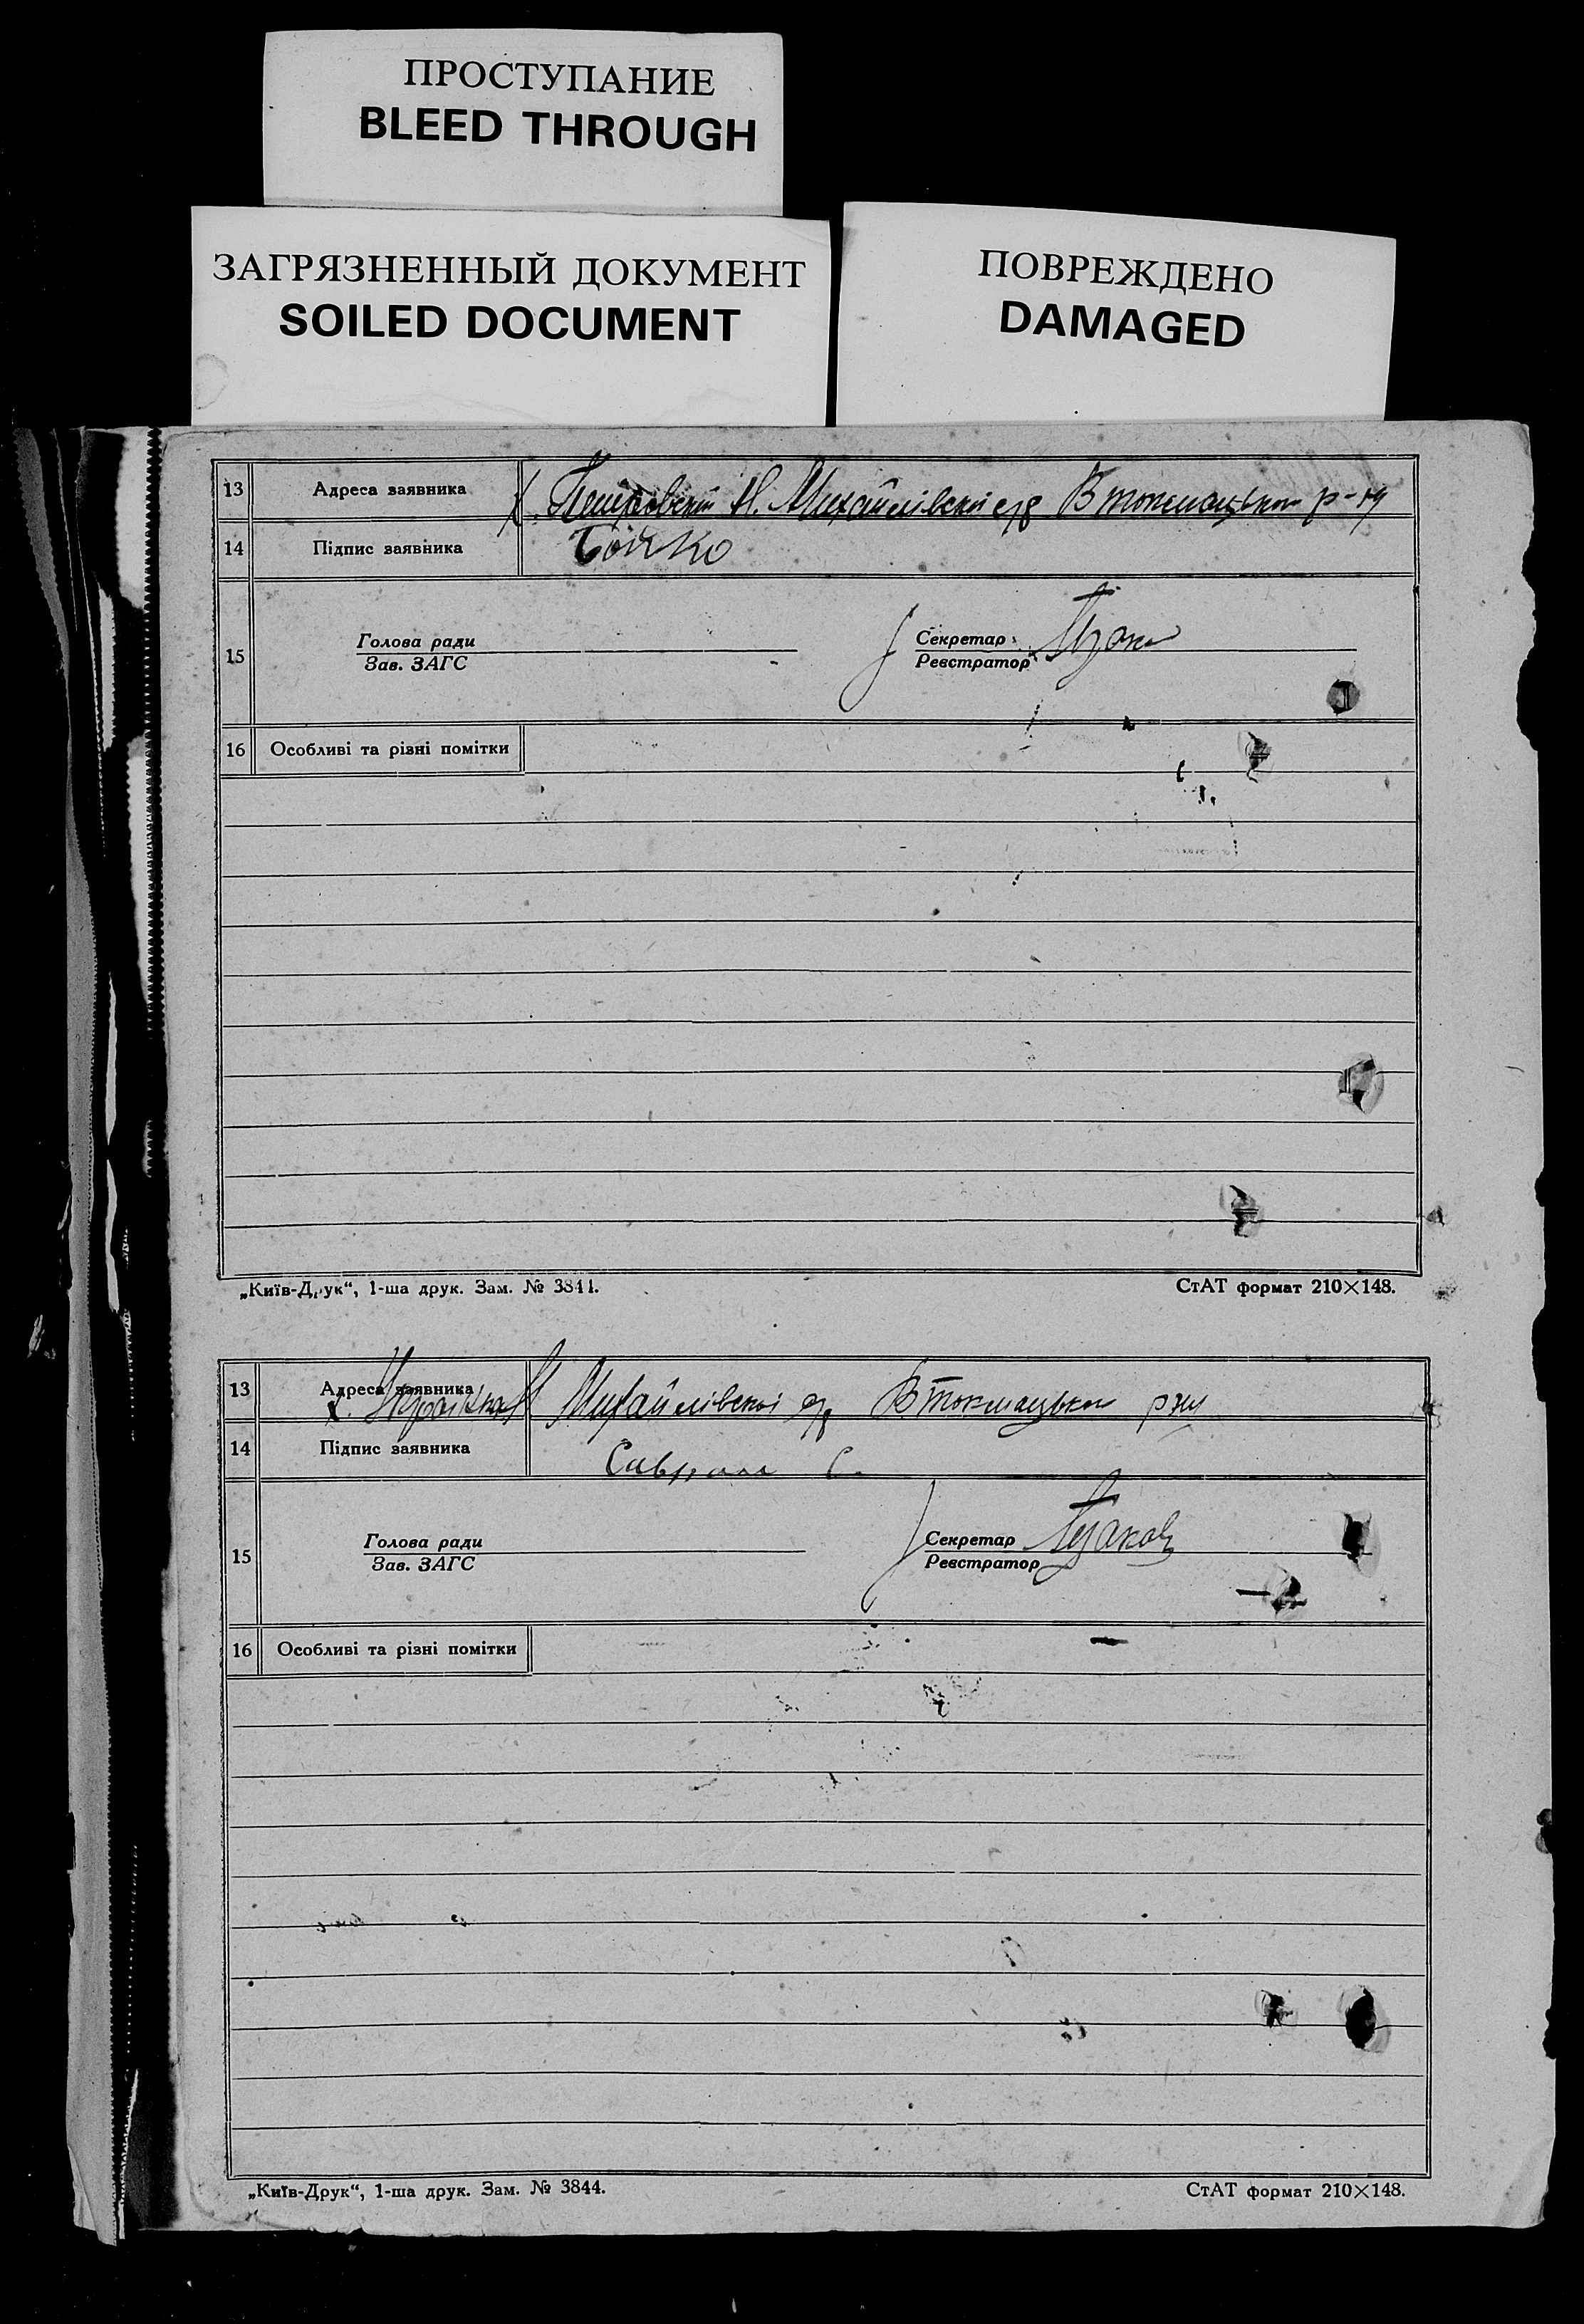 ПРОСТУПАНИЕ
BLEED THROUGH
ЗАГРЯЗНЕННЫЙ ДОКУМЕНТ
SOILED DOCUMENT
ПОВРЕЖДЕНО
DAMAGED
13 Адреса заявника Х. Петровский Н. Михайлівскої с/р В Токмацького р-ну
14 Підпис заявника Бойко
15 Голова ради
Зав. ЗАГС
Секретар
Реєстратор
16 Особливі та різні помітки
„Київ-Друк“, 1-ша друк. Зам. № 3844. СтАТ формат 210×148.
13 Адреса заявника Х. Українка Н Михайлівскої с/р В Токмацького р-ну
14 Підпис заявника С.
15 Голова ради
Зав. ЗАГС
Секретар
Реєстратор
16 Особливі та різні помітки
„Київ-Друк“, 1-ша друк. Зам. № 3844. СтАТ формат 210×148.